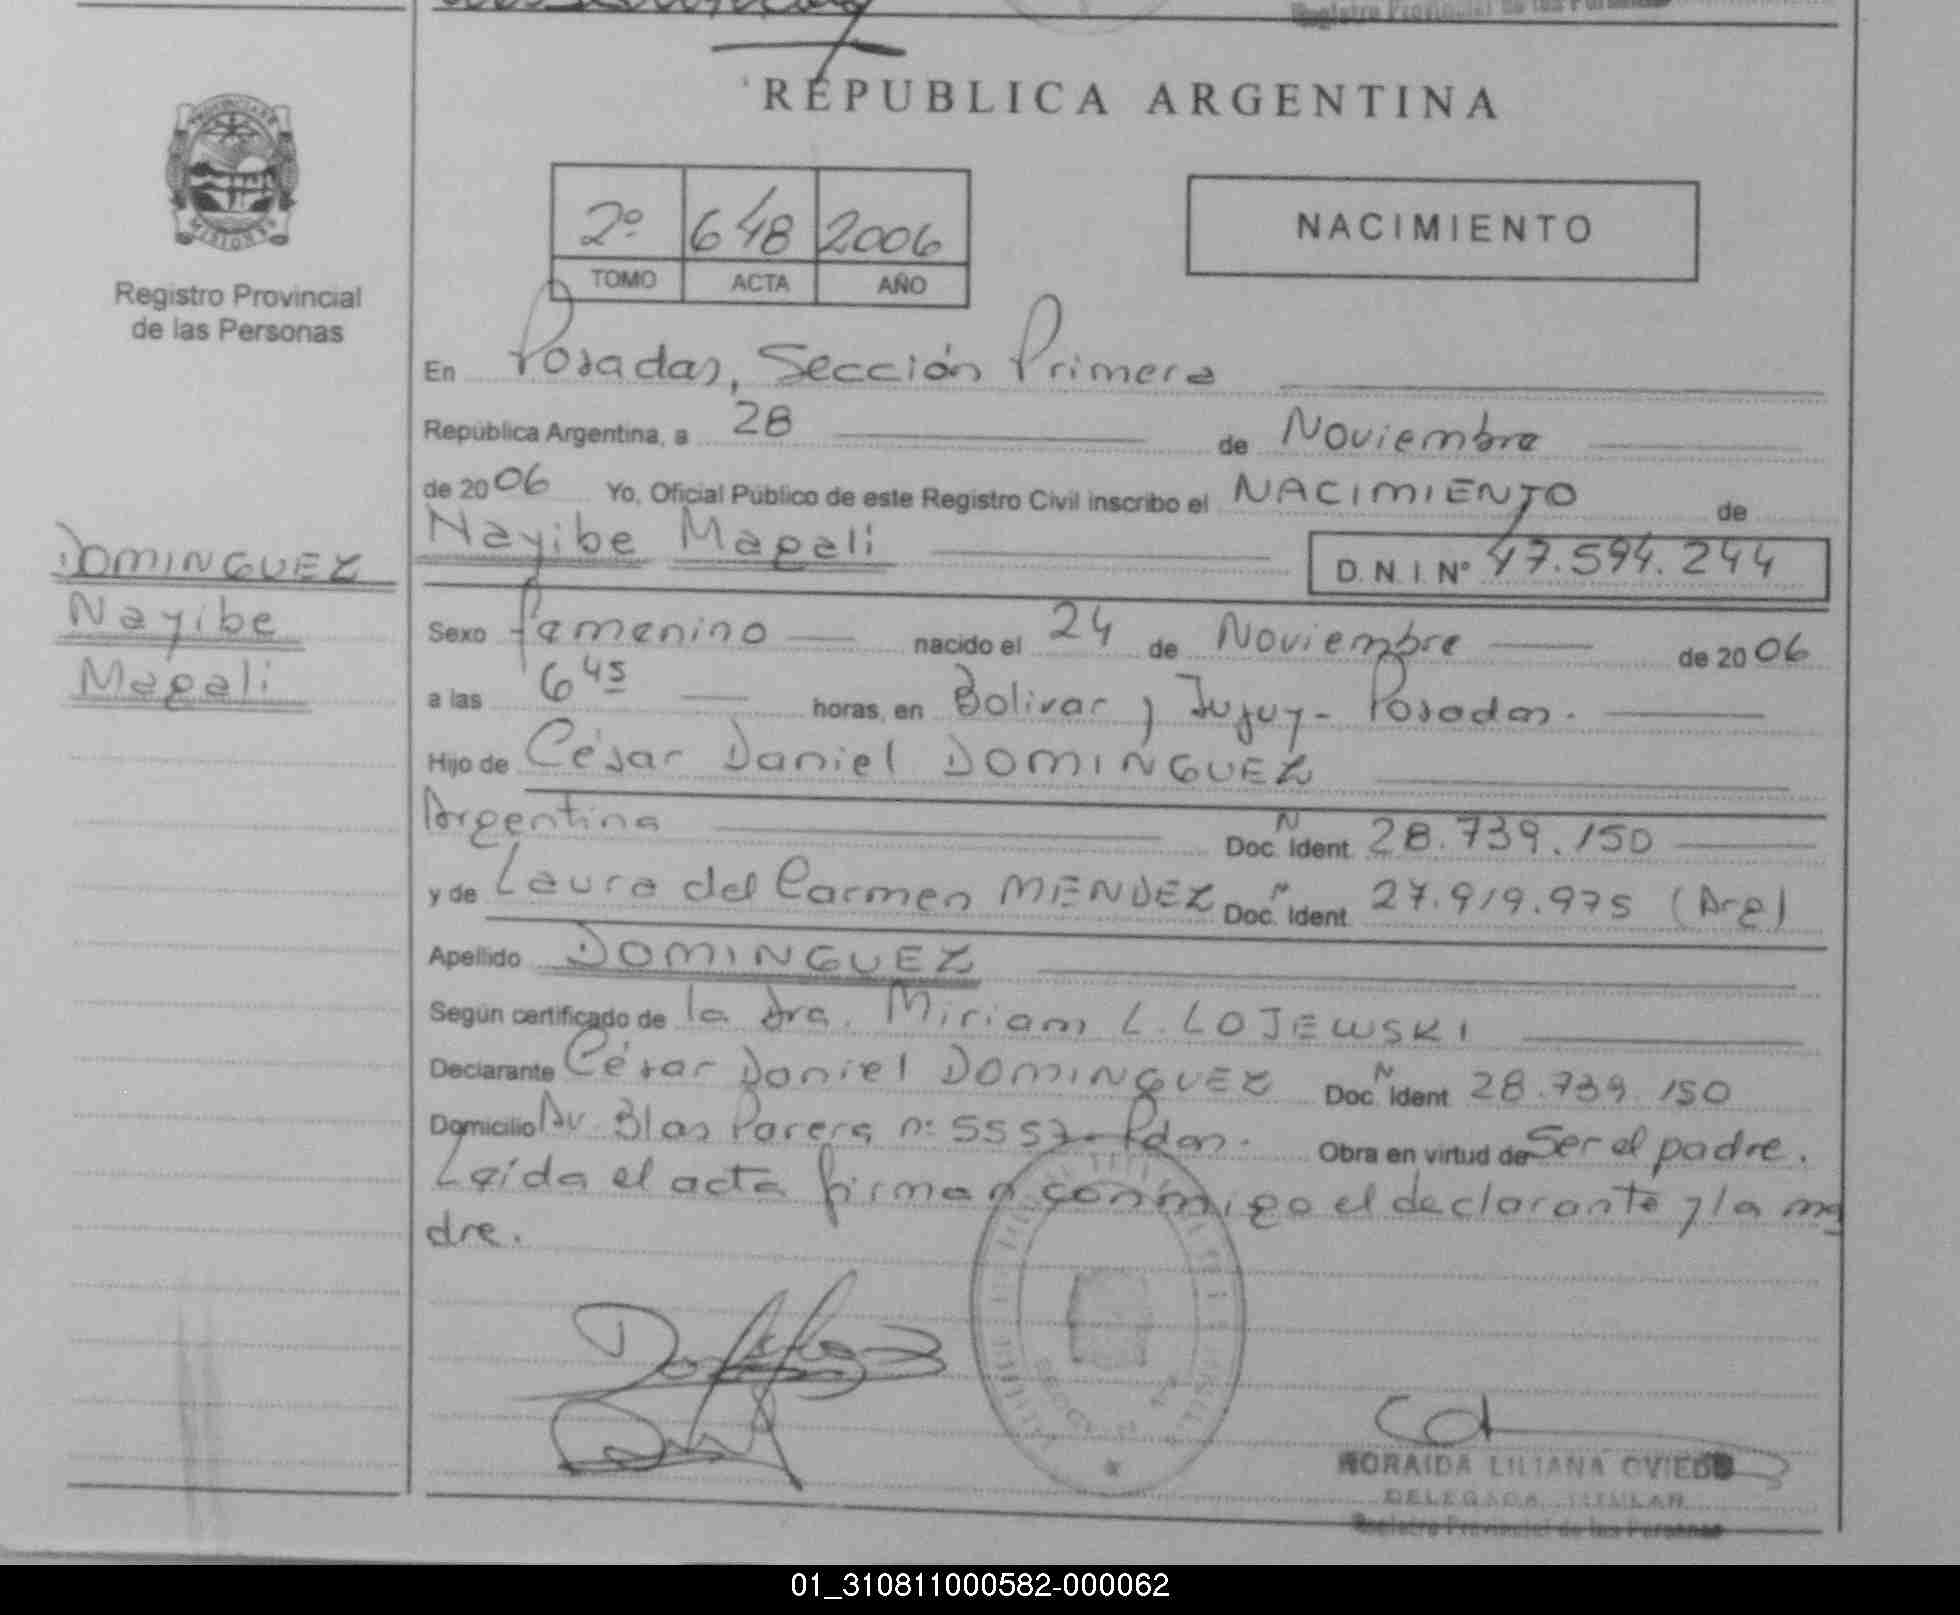 REPUBLICA ARGENTINA
PROVINCIA DE
MISIONES
Registro Provincial
de las Personas
2º 648 2006
TOMO ACTA AÑO
NACIMIENTO
En Posadas, Sección Primera
República Argentina, a 28 de Noviembre
de 2006 Yo, Oficial Público de este Registro Civil inscribo el NACIMIENTO de
Nayibe Magali D.N.I. Nº 47.594.244
DOMINGUEZ
Nayibe
Magali
Sexo femenino nacido el 24 de Noviembre de 2006
a las 6 45 horas, en Bolivar y Jujuy - Posadas.
Hijo de César Daniel DOMINGUEZ
Argentina Doc. N Ident. 28.739.150
y de Laura del Carmen MENDEZ Doc. N Ident. 27.919.975 (Arg)
Apellido DOMINGUEZ
Según certificado de la Dra. Miriam L. LOJEWSKI
Declarante César Daniel DOMINGUEZ Doc. N Ident. 28.739.150
Domicilio Av. Blas Parera nº 5557 - Pdas. Obra en virtud de Ser el padre.
Leída el acta firman conmigo el declarante y la ma
dre.
NORAIDA LILIANA OVIEDO
DELEGADA TITULAR
Registro Provincial de las Personas
01_310811000582-000062